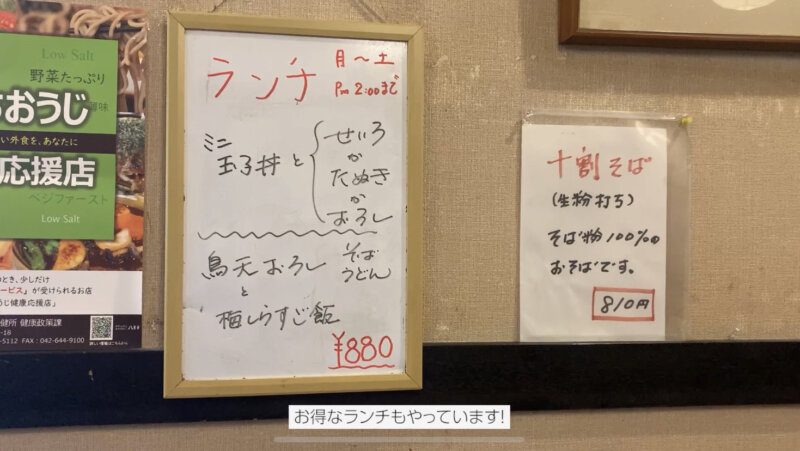 Low Salt
野菜たっぷり
おうじ
い外食を、あなたに
応援店
ベジファースト
Low Salt
のとき、少しだけ
ービス」が受けられるお店
うじ健康応援店」
健所 健康政策課
-18
-5112 FAX : 042-644-9100
ランチ
月〜土
Pm 2:00まで
ミニ
玉子丼と
せいろ
か
たぬき
か
おろし
鳥天おろし
そば
うどん
と
梅しらすご飯
¥880
十割そば
(生粉打ち)
そば粉100%の
おそばです。
810円
お得なランチもやっています!